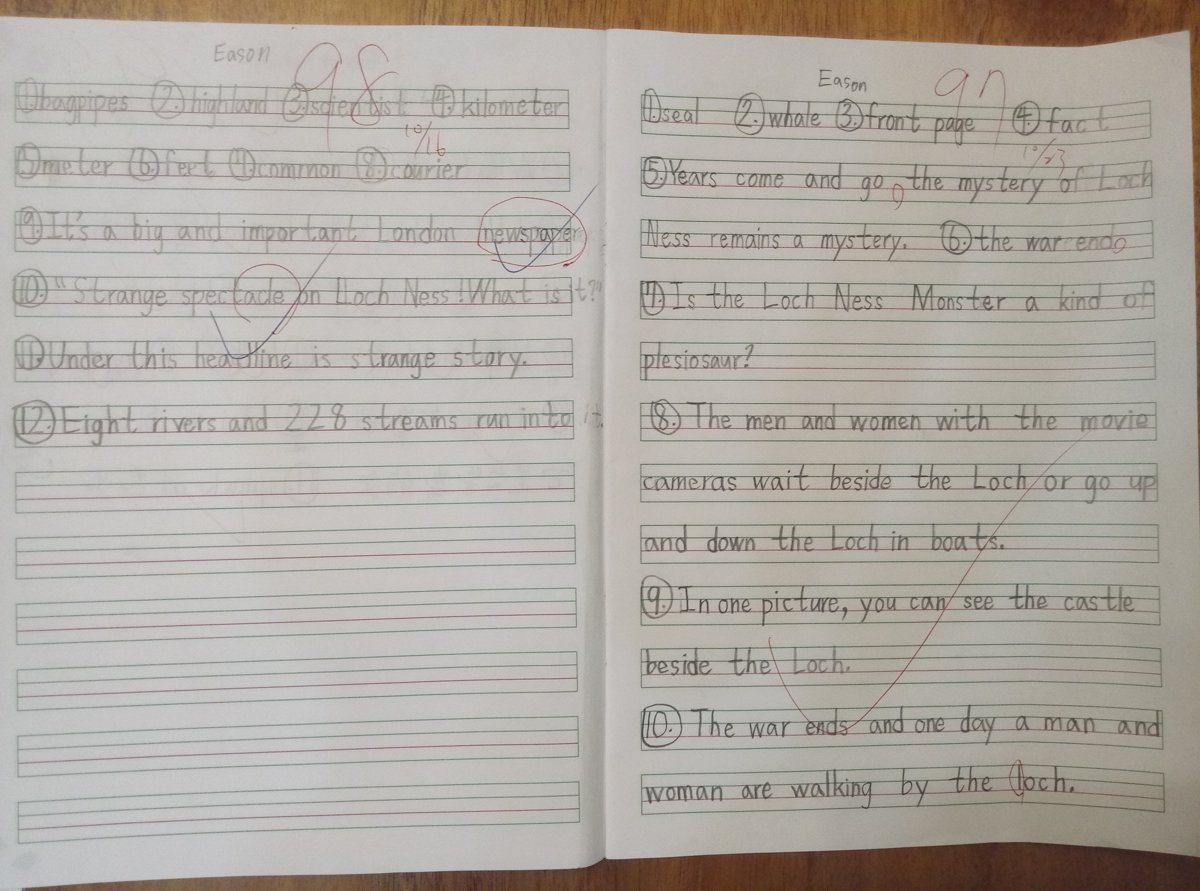 Eason
98
①bagpipes ②highland ③scientist ④kilometer
10/16
⑤meter ⑥feet ⑦common ⑧courier
⑨It's a big and important London newspaper
⑩"Strange spectacle on Loch Ness! What is it?"
⑪Under this headline is strange story.
⑫Eight rivers and 228 streams run into it.
Eason
97
①seal ②whale ③front page ④fact
10/23
⑤Years come and go, the mystery of Loch
Ness remains a mystery. ⑥the war end
⑦Is the Loch Ness Monster a kind of
plesiosaur?
⑧The men and women with the movie
cameras wait beside the Loch or go up
and down the Loch in boats.
⑨In one picture, you can see the castle
beside the Loch.
⑩The war ends and one day a man and
woman are walking by the loch.